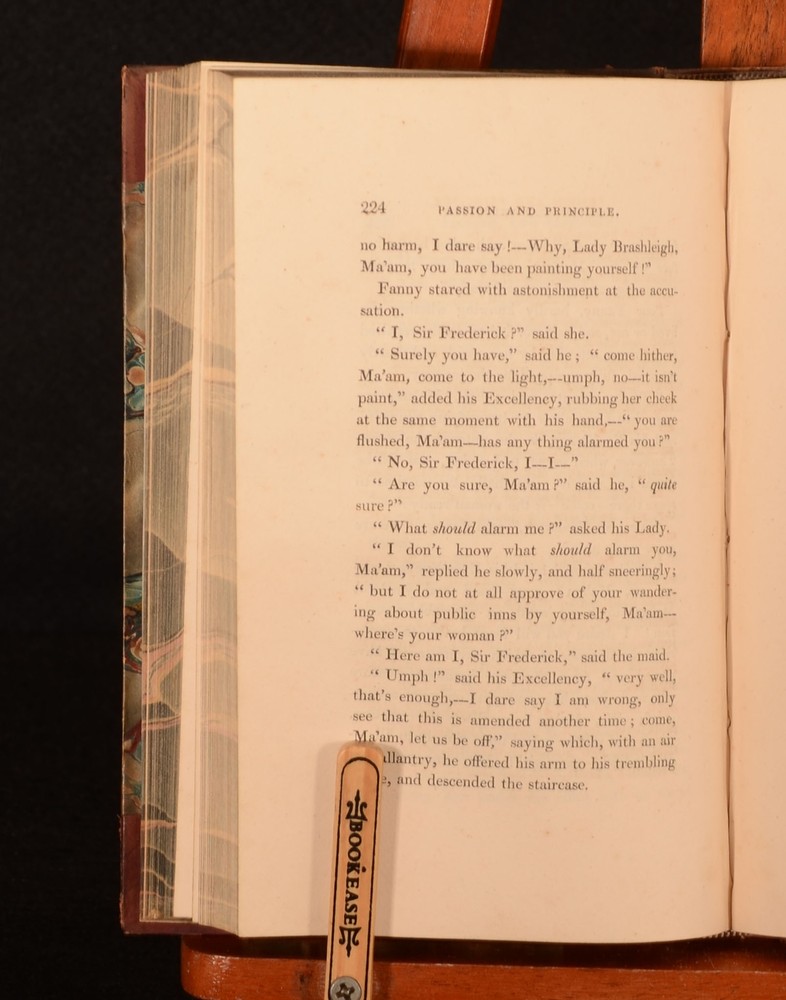 224 PASSION AND PRINCIPLE.
no harm, I dare say!—Why, Lady Brashleigh,
Ma'am, you have been painting yourself!"
Fanny stared with astonishment at the accu-
sation.
"I, Sir Frederick?" said she.
"Surely you have," said he; "come hither,
Ma'am, come to the light,—umph, no—it isn't
paint," added his Excellency, rubbing her cheek
at the same moment with his hand,—"you are
flushed, Ma'am—has any thing alarmed you?"
"No, Sir Frederick, I—I—"
"Are you sure, Ma'am?" said he, "quite
sure?"
"What should alarm me?" asked his Lady.
"I don't know what should alarm you,
Ma'am," replied he slowly, and half sneeringly;
"but I do not at all approve of your wander-
ing about public inns by yourself, Ma'am—
where's your woman?"
"Here am I, Sir Frederick," said the maid.
"Umph!" said his Excellency, "very well,
that's enough,—I dare say I am wrong, only
see that this is amended another time; come,
Ma'am, let us be off," saying which, with an air
llantry, he offered his arm to his trembling
, and descended the staircase.
BOOKEASE